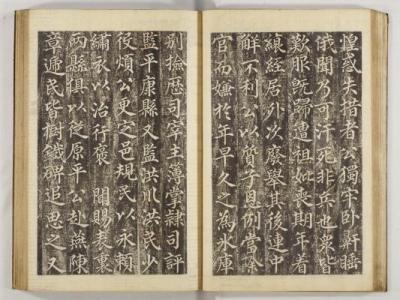 惶惑失措者公獨牢卧鼾睡
俄聞乃可汗死非兵也衆皆
歎服既歸遭祖妣喪期年着
縗絰居外次廢舉其後連中
觧不利公以質子恩例當
官而嫌於年早久之為水庫
別撿歷司宰主薄掌隷司評
監平康縣又監洪川洪民少
役煩公更之邑規民以永頼
繡衣以治行褒 聞賜表裏
兩縣俱以從原平公赴燕陳
章遞民皆樹鐵碑追思之又